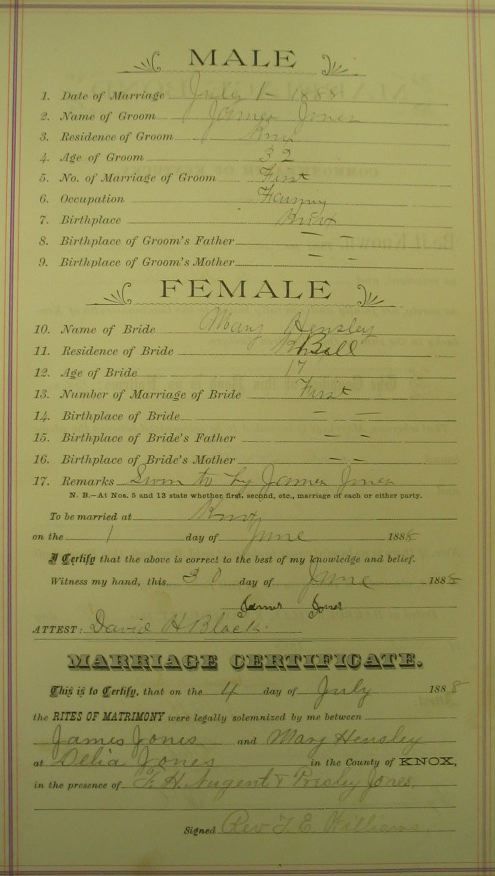 MALE
1. Date of Marriage July 1 - 1888
2. Name of Groom James Jones
3. Residence of Groom Knox
4. Age of Groom 32
5. No. of Marriage of Groom First
6. Occupation
7. Birthplace Knox
8. Birthplace of Groom's Father — —
9. Birthplace of Groom's Mother — —
FEMALE
10. Name of Bride Mary Hensley
11. Residence of Bride Bell
12. Age of Bride 17
13. Number of Marriage of Bride First
14. Birthplace of Bride — —
15. Birthplace of Bride's Father — —
16. Birthplace of Bride's Mother — —
17. Remarks Sworn to by James Jones
N. B.—At Nos. 5 and 13 state whether first, second, etc., marriage of each or either party.
To be married at Knox
on the 1 day of June 1888
I Certify that the above is correct to the best of my knowledge and belief.
Witness my hand, this 30 day of June 1888
James Jones
ATTEST: David H Black
MARRIAGE CERTIFICATE.
This is to Certify, that on the 4 day of July 1888
the RITES OF MATRIMONY were legally solemnized by me between
James Jones and Mary Hensley
at Delia Jones in the County of KNOX,
in the presence of F. H. Nugent & Presley Jones,
Signed Rev T. E. Williams